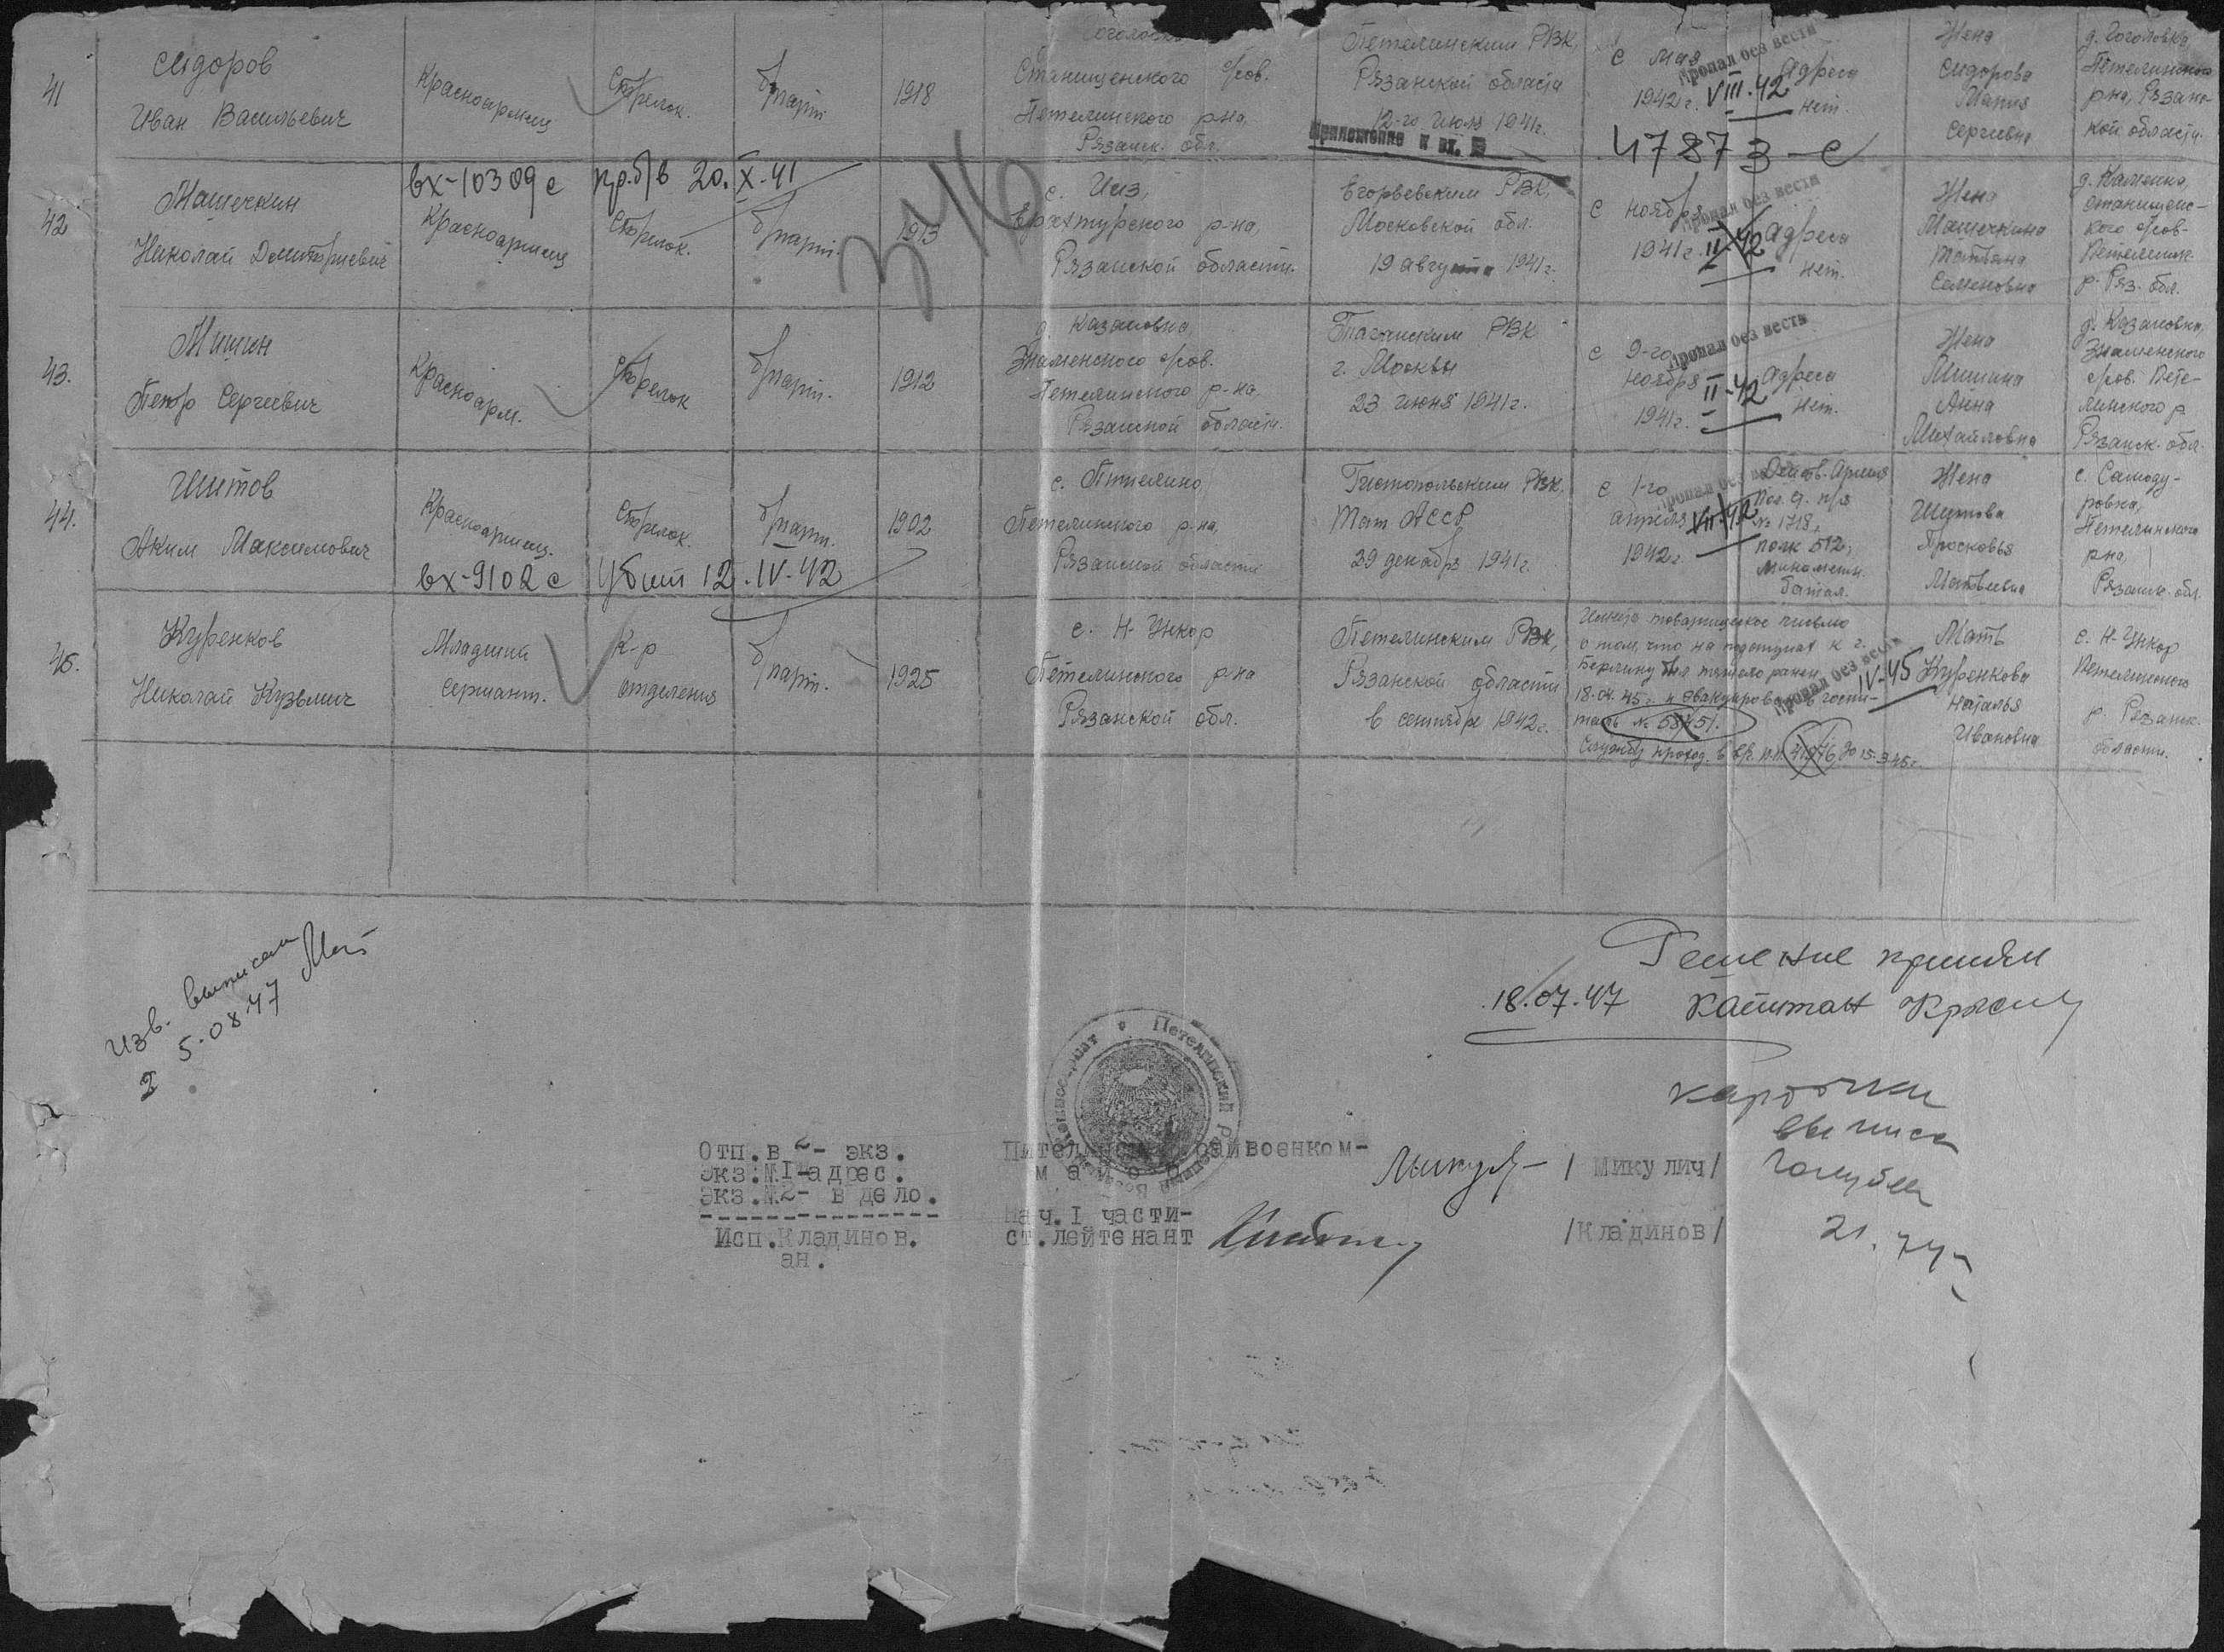 41
Сидоров
Иван Васильевич
Красноармеец
Стрелок.
б/парт.
1918
Станищенского с/сов.
Пителинского р-на,
Рязанск. обл.
Пителинским РВК,
Рязанской области
12-го июля 1941г.
Приложение к вх. №
с мая
1942г.
Пропал без вести
VIII.42
Адреса
нет.
47873-с
Жена
Сидорова
Мария
Сергеевна
д. Гоголовка,
Пителинского
р-на, Рязанс-
кой области.
42
Машечкин
Николай Дмитриевич
вх-10309с пр.б/в 20.X.41
Красноармеец
Стрелок.
б/парт.
1913
с. Ижз,
Ерахтурского р-на,
Рязанской области.
Егорьевским РВК,
Московской обл.
19 августа 1941г.
с ноября
1941г.
Пропал без вести
II.42
Адреса
нет.
Жена
Машечкина
Татьяна
Семеновна
д. Каменка,
станищенс-
кого с/сов-
Пителинск.
р. Ряз. обл.
43.
Мишин
Петр Сергеевич
Красноарм.
Стрелок
б/парт.
1912
д. Казановка,
Знаменского с/сов.
Пителинского р-на,
Рязанской области.
Таганским РВК
г. Москвы
23 июня 1941г.
с 9-го
ноября
1941г.
Пропал без вести
II-42
Адреса
нет.
Жена
Мишина
Анна
Михайловна
д. Казановка,
Знаменского
с/сов. Пите-
линского р.
Рязанск. обл.
44.
Шитов
Аким Максимович
Красноармеец.
Стрелок.
б/парт.
вх-9102с Убит 12.IV.42
1902
с. Пителино,
Пителинского р-на,
Рязанской области
Чистопольским РВК,
Тат АССР
29 декабря 1941г.
с 1-го
апреля
1942г.
Пропал без вести
VII.42
Действ. Армия
№ 1718,
полк 512,
минометн.
батал.
Жена
Шитова
Просковья
Матвеевна
с. Самоду-
ровка,
Пителинского
р-на,
Рязанск. обл.
45.
Куренков
Николай Кузьмич
Младший
сержант.
К-р
отделения
б/парт.
1925
с. Н-Ункор
Пителинского р-на
Рязанской обл.
Пителинским РВК,
Рязанской области
в сентябре 1942г.
товарищеское письмо
о том, что на подступах к г.
Берлину был тяжело ранен
18.04.45г. и эвакуирован в госпи-
таль № 5845.
Службу проход. в в/ч п.п. 41976 до 15.3.45г.
Пропал без вести
IV-45
Мать
Куренкова
Наталья
Ивановна
с. Н-Ункор
Пителинского
р. Рязанск.
области.
Изв. выписал
2 5.08.47
Решение принял
18.07.47 капитан
карточки
выписал
21.
Отп.в 2- экз.
экз.№1-адрес.
экз.№2- в дело.
Исп.Кладинов.
ан.
Пителинский райвоенком-
майор /Микулич/
Нач.I части-
ст.лейтенант /Кладинов/